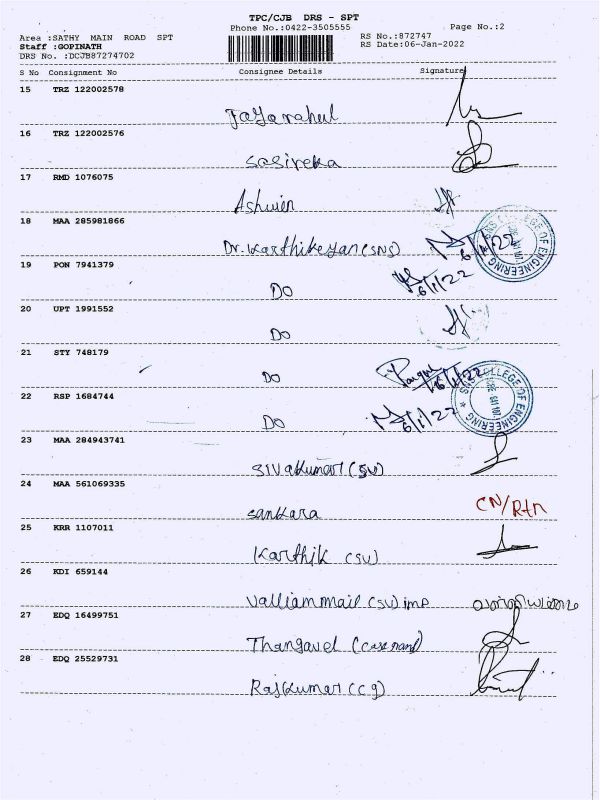 TPC/CJB DRS - SPT
Phone No.:0422-3505555
Page No.:2
Area :SATHY MAIN ROAD SPT
RS No.:872747
Staff :GOPINATH
RS Date:06-Jan-2022
DRS No. :DCJB87274702
S No Consignment No Consignee Details Signature
15 TRZ 122002578
Jayarahul
16 TRZ 122002576
Sasireka
17 RMD 1076075
Ashwin
18 MAA 285981866
Dr.Karthikeyan (SNS) 6/1/22
SNS COLLEGE OF ENGINEERING
19 PON 7941379
DO 6/1/22
20 UPT 1991552
DO
21 STY 748179
DO 6/1/22
22 RSP 1684744
DO 6/1/22
SNS COLLEGE OF ENGINEERING
23 MAA 284943741
Sivakumar (SV)
24 MAA 561069335
Sankara CN/Rtn
25 KRR 1107011
Karthik (SV)
26 KDI 659144
Valliammail (SV) imp
27 EDQ 16499751
Thangavel
28 EDQ 25529731
Rajkumar (C9)